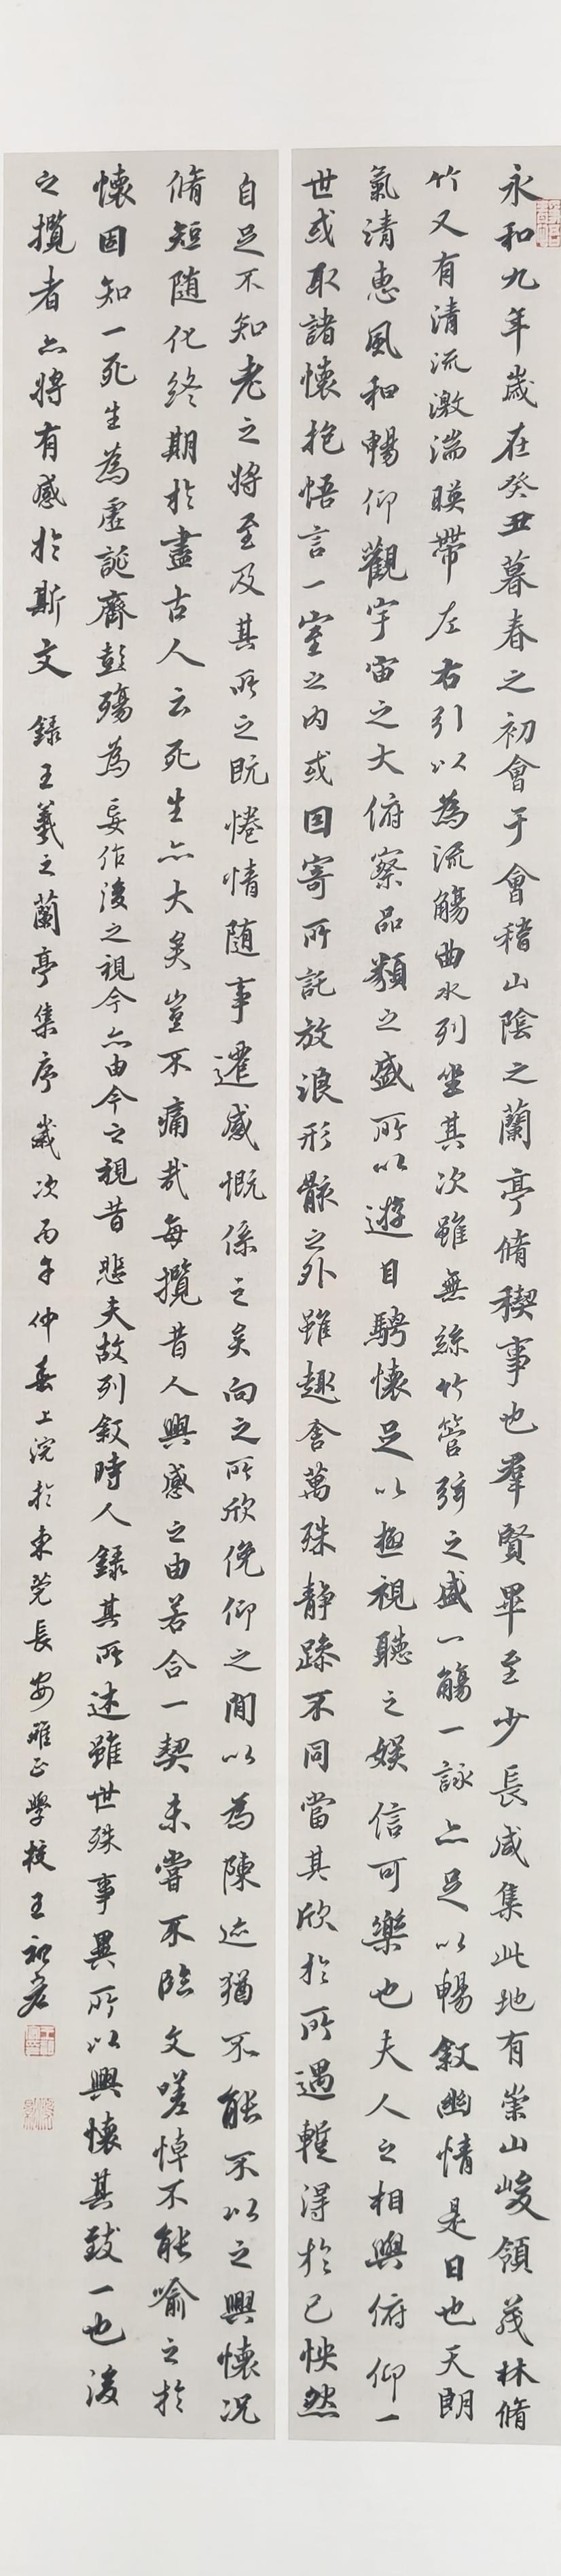 永和九年歲在癸丑暮春之初會于會稽山陰之蘭亭脩稧事也羣賢畢至少長咸集此地有崇山峻領茂林脩
竹又有清流激湍暎帶左右引以為流觴曲水列坐其次雖無絲竹管弦之盛一觴一詠亦足以暢敘幽情是日也天朗
氣清惠風和暢仰觀宇宙之大俯察品類之盛所以遊目騁懷足以極視聽之娛信可樂也夫人之相與俯仰一
世或取諸懷抱悟言一室之內或因寄所託放浪形骸之外雖趣舍萬殊靜躁不同當其欣於所遇蹔得於己怏然
自足不知老之將至及其所之既惓情隨事遷感慨係之矣向之所欣俛仰之閒以為陳迹猶不能不以之興懷況
脩短隨化終期於盡古人云死生亦大矣豈不痛哉每攬昔人興感之由若合一契未嘗不臨文嗟悼不能喻之於
懷固知一死生為虛誕齊彭殤為妄作後之視今亦由今之視昔悲夫故列敘時人錄其所述雖世殊事異所以興懷其致一也後
之攬者亦將有感於斯文 錄王羲之蘭亭集序歲次丙午仲春上浣於東莞長安雅正學校王